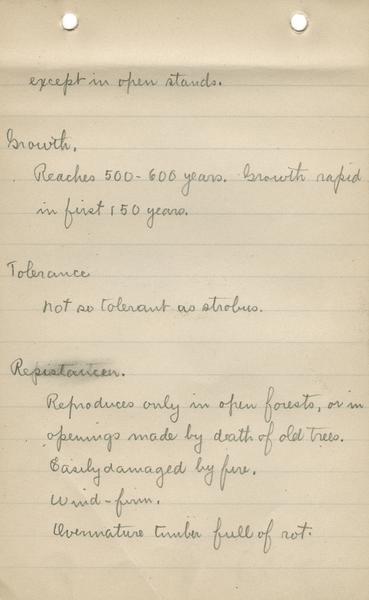 except in open stands.
Growth.
Reaches 500-600 years. Growth rapid
in first 150 years.
Tolerance
Not so tolerant as strobus.
Reproduces only in open forests, or in
openings made by death of old trees.
Easily damaged by fire.
Wind-firm.
Overmature timber full of rot.